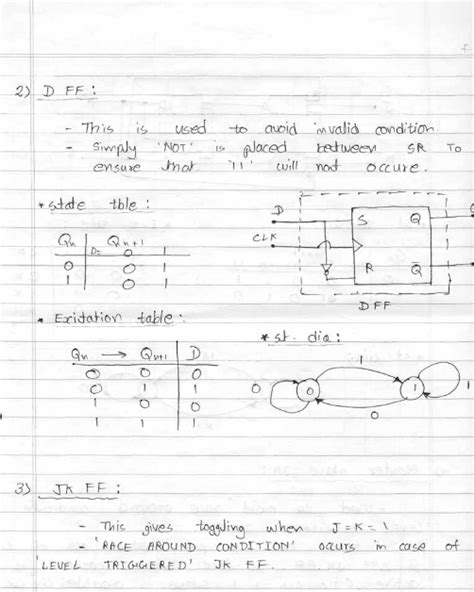 2) D FF :
- This is used to avoid invalid condition.
- Simply 'NOT' is placed between SR TO
ensure that '11' will not occure.
* state tble :
Qn Qn+1
D= 0 1
0 0 1
1 0 1
D S Q
CLK
R Q̅
D FF
• Exitation table :
Qn → Qn+1 D
0 0 0
0 1 1
1 0 0
1 1 1
* st. dia :
1
0 0 1 1
0
3) JK FF :
- This gives toggling when J=K=1
- 'RACE AROUND CONDITION' occurs in case of
'LEVEL TRIGGERED' JK FF.